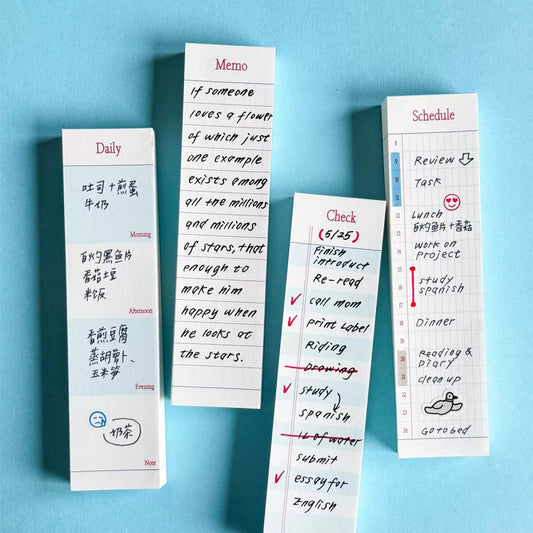 Daily
吐司+煎蛋
牛奶
Morning
白灼黑鱼片
香菇土豆
米饭
Afternoon
香煎豆腐
蒸胡萝卜、
玉米笋
Evening
奶茶
Note
Memo
If someone
loves a flower
of which just
one example
exists among
all the millions
and millions
of stars, that
enough to
make him
happy when
he looks at
the stars.
Check
(5/25)
Finish
introduct
Re-read
call mom
print Label
Riding
Drawing
study
spanish
1L of water
submit
essay for
English
Schedule
8
9
Review
10
Task
11
12
Lunch
13
白灼鱼片+香菇
14
work on
project
15
16
study
spanish
17
18
Dinner
19
20
Reading &
Diary
21
clean up
22
23
24
Go to bed